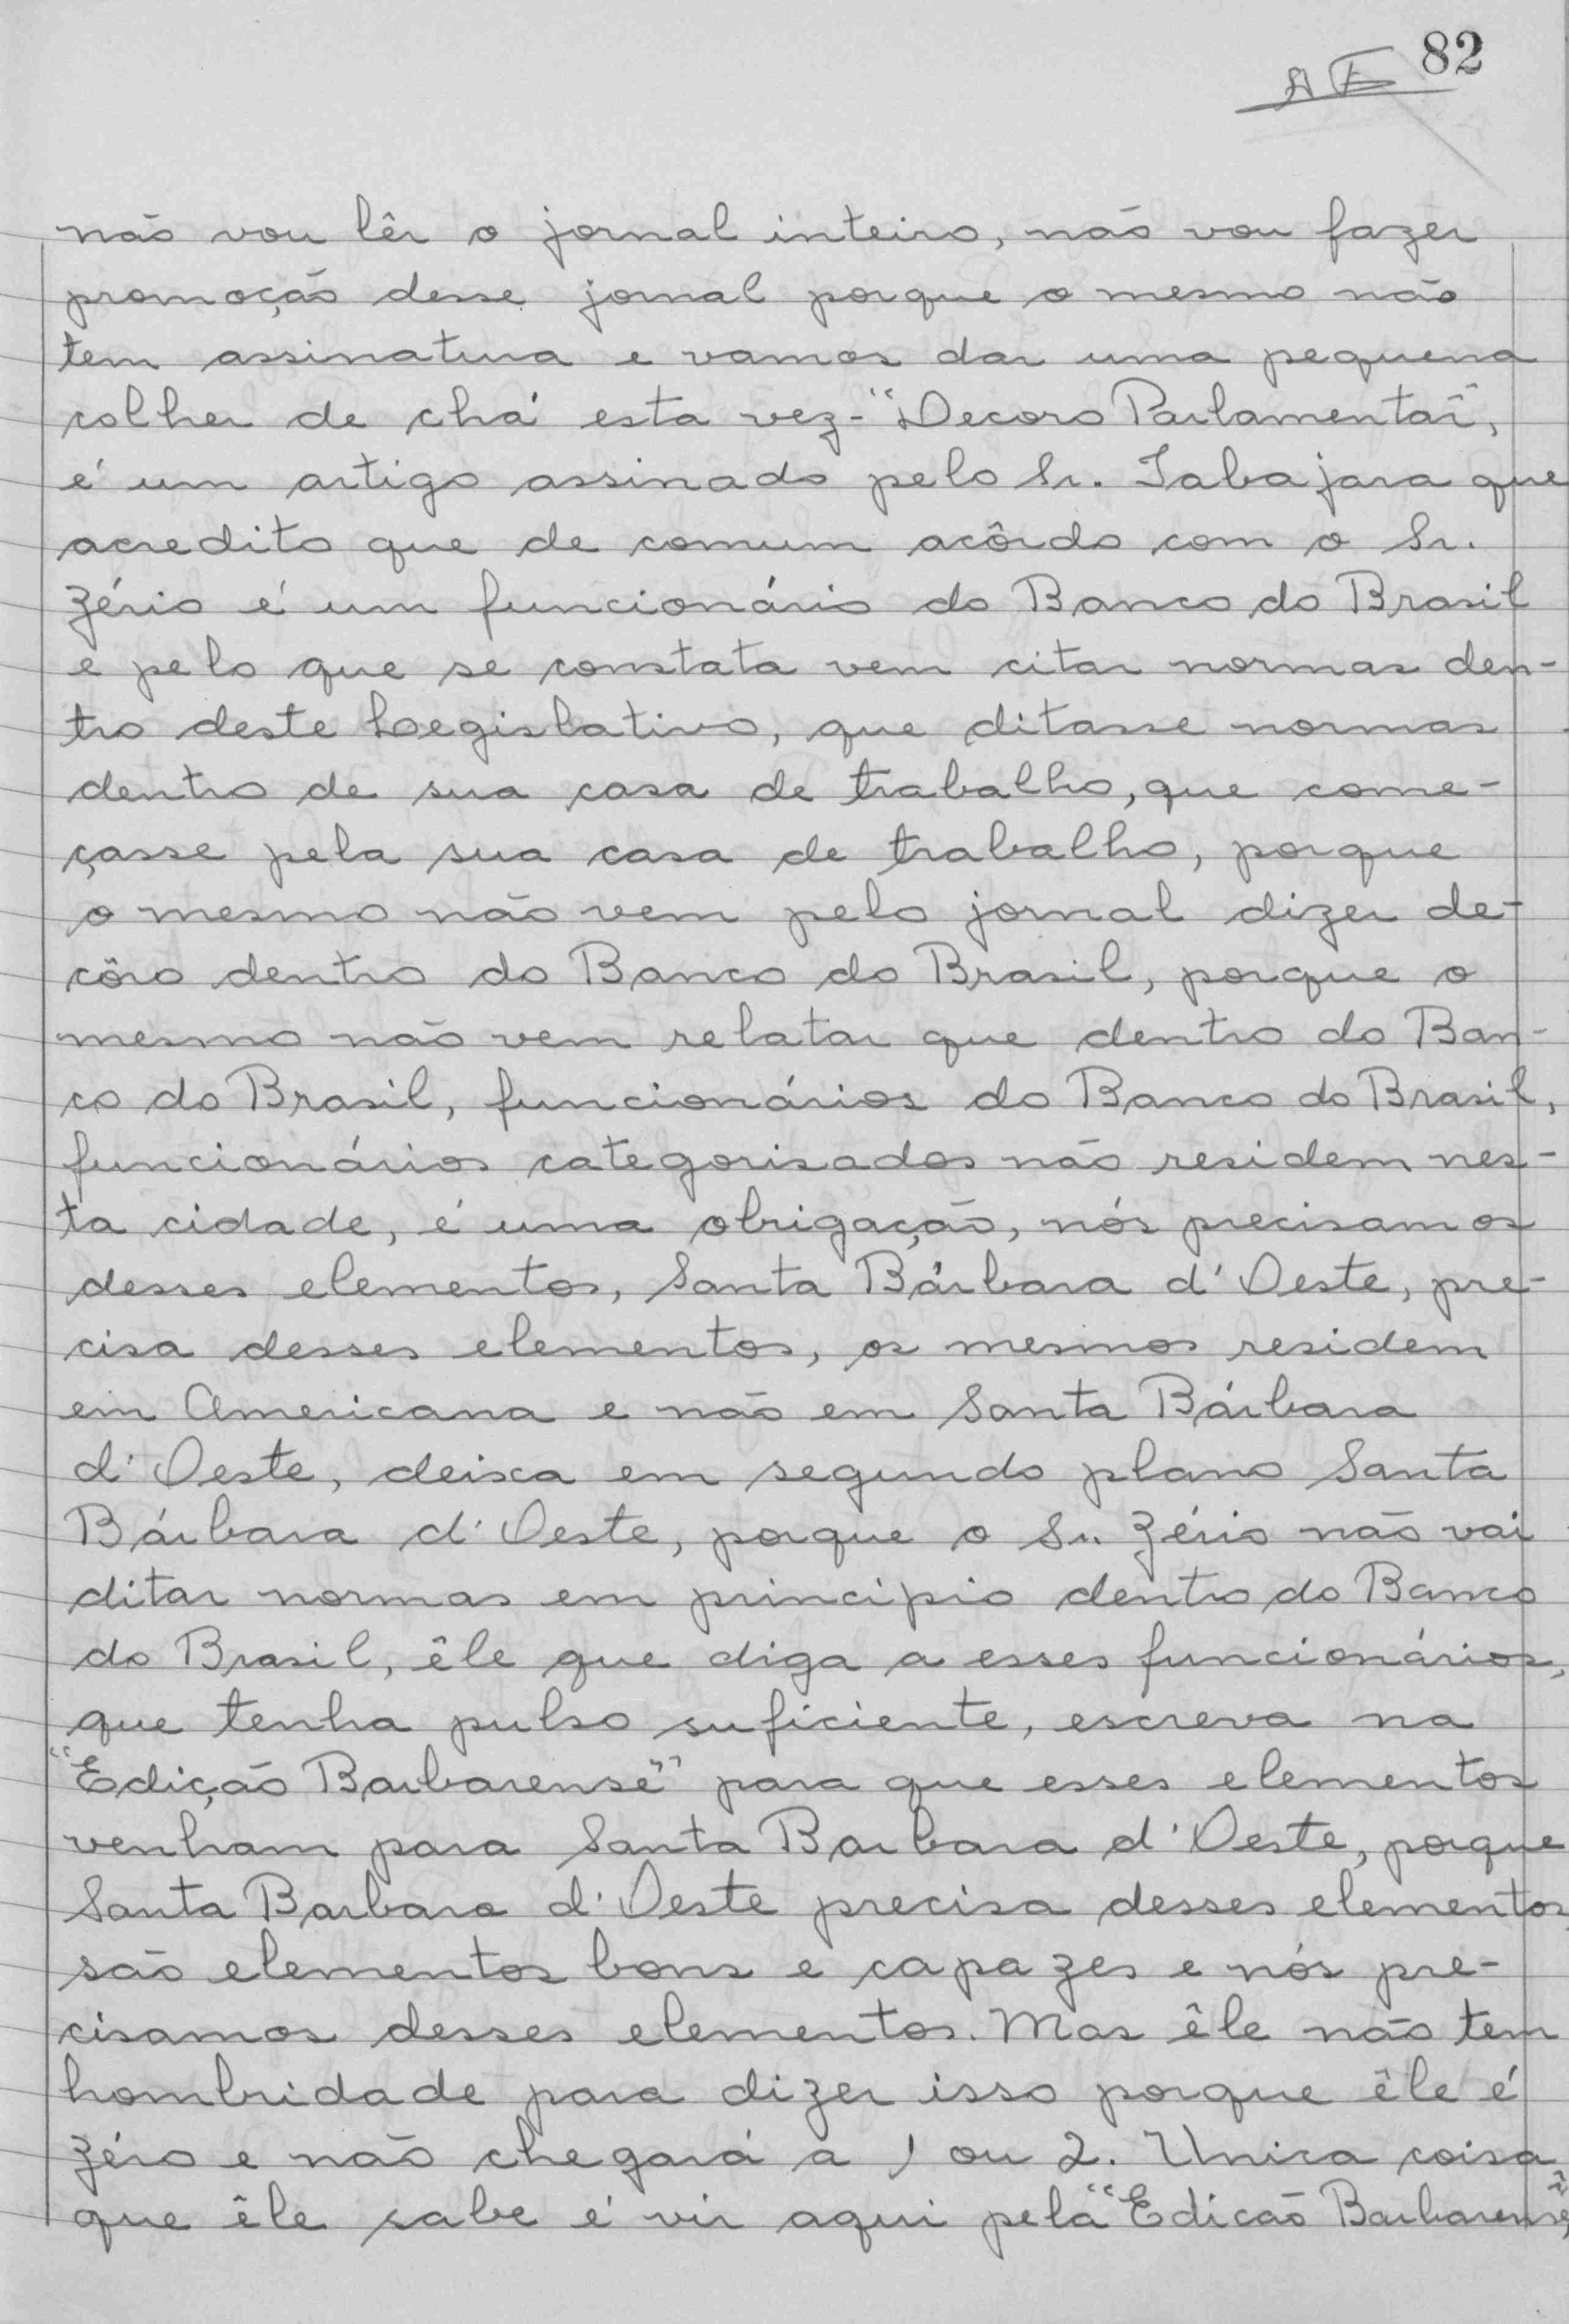 82
não vou lêr o jornal inteiro, não vou fazer
promoção desse jornal porque o mesmo não
tem assinatura e vamos dar uma pequena
colher de chá esta vez-"Decoro Parlamentar",
é um artigo assinado pelo Sr. Tabajara que
acredito que de comum acôrdo com o Sr.
Zério é um funcionário do Banco do Brasil
e pelo que se constata vem citar normas den-
tro deste Legislativo, que ditasse normas
dentro de sua casa de trabalho, que come-
çasse pela sua casa de trabalho, porque
o mesmo não vem pelo jornal dizer de-
côro dentro do Banco do Brasil, porque o
mesmo não vem relatar que dentro do Ban-
co do Brasil, funcionários do Banco do Brasil,
funcionários categorisados não residem nes-
ta cidade, é uma obrigação, nós precisamos
desses elementos, Santa Bárbara d'Oeste, pre-
cisa desses elementos, os mesmos residem
em Americana e não em Santa Bárbara
d'Oeste, deixa em segundo plano Santa
Bárbara d'Oeste, porque o Sr. Zério não vai
ditar normas em principio dentro do Banco
do Brasil, êle que diga a esses funcionários,
que tenha pulso suficiente, escreva na
"Edição Barbarense" para que esses elementos
venham para Santa Barbara d'Oeste, porque
Santa Barbara d'Oeste precisa desses elementos,
são elementos bons e capazes e nós pre-
cisamos desses elementos. Mas êle não tem
hombridade para dizer isso porque êle é
zéro e não chegará a 1 ou 2. Unica coisa
que êle sabe é vir aqui pela "Edicão Barbarense",